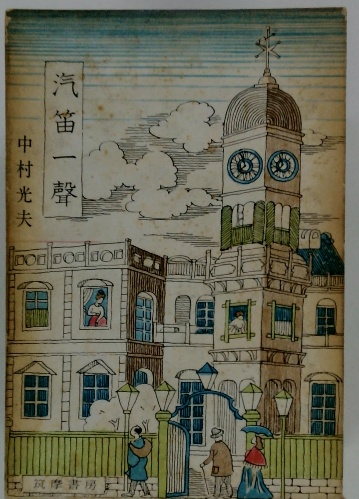 汽笛一聲
中村光夫
筑摩書房